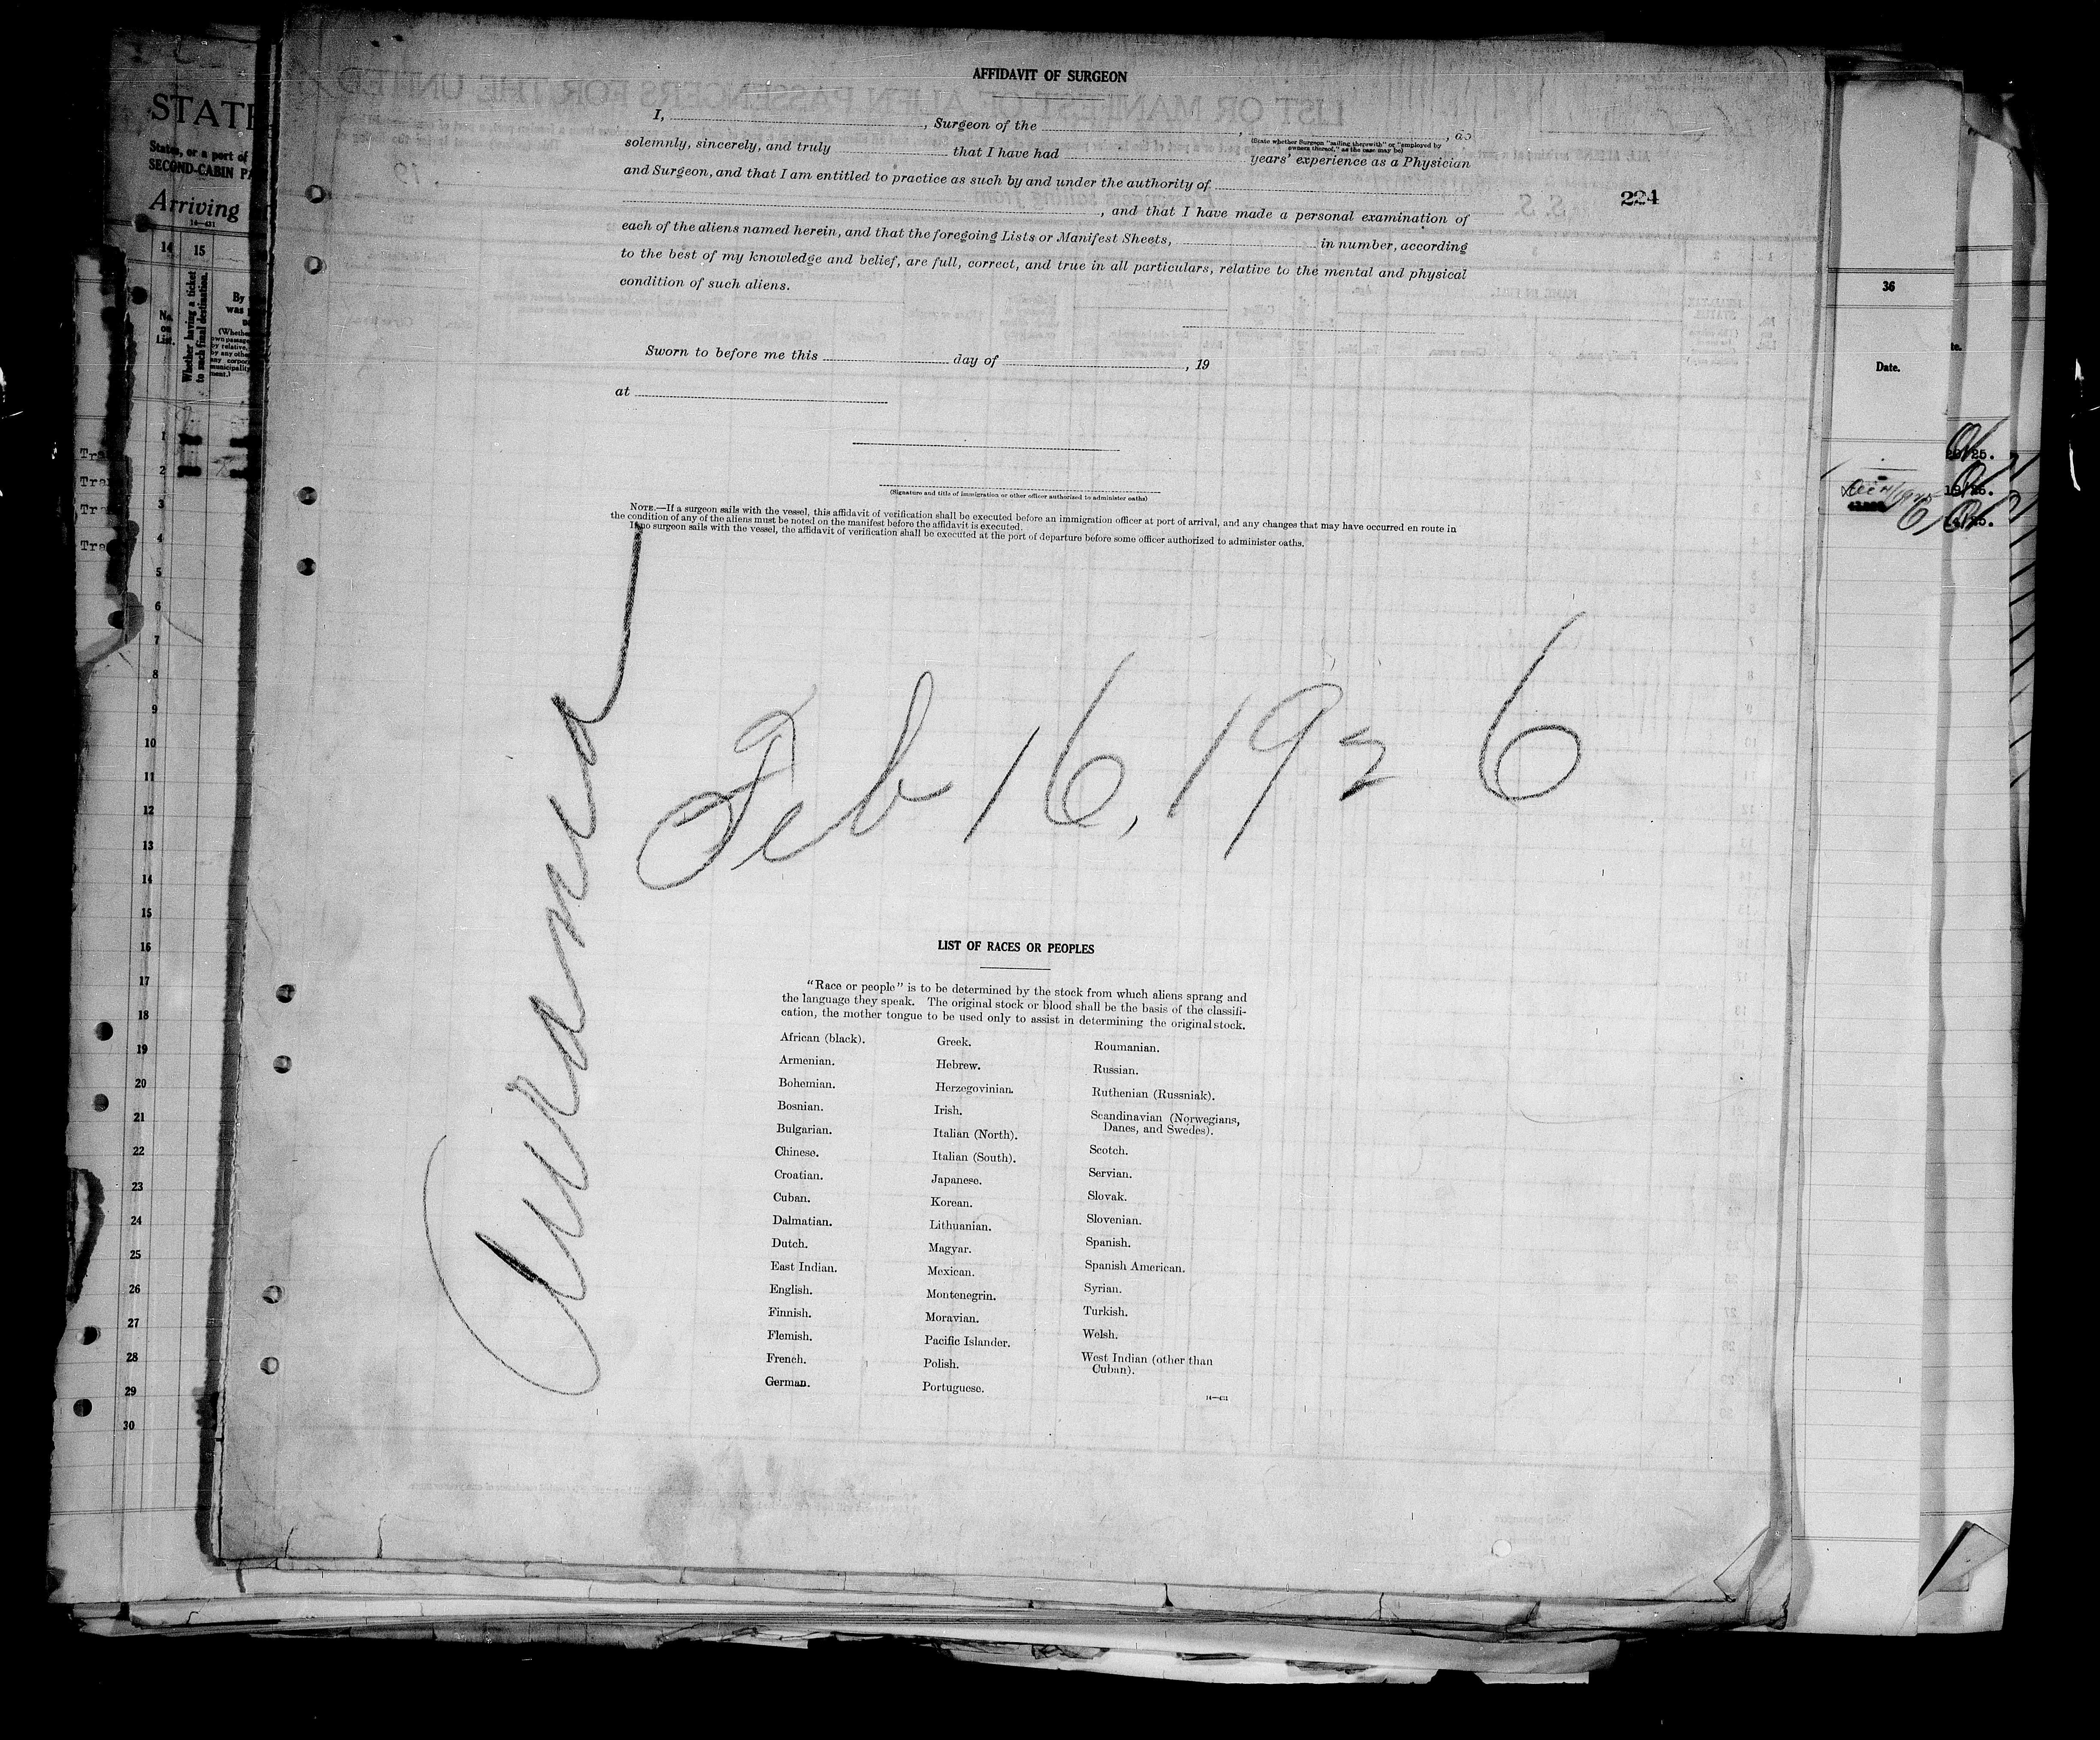 AFFIDAVIT OF SURGEON
I, , Surgeon of the , , do
(State whether Surgeon "sailing therewith" or "employed by
owners thereof," as the case may be)
solemnly, sincerely, and truly that I have had years' experience as a Physician
and Surgeon, and that I am entitled to practice as such by and under the authority of
, and that I have made a personal examination of
each of the aliens named herein, and that the foregoing Lists or Manifest Sheets, in number, according
to the best of my knowledge and belief, are full, correct, and true in all particulars, relative to the mental and physical
condition of such aliens.
Sworn to before me this day of , 19
at
(Signature and title of immigration or other officer authorized to administer oaths)
NOTE.—If a surgeon sails with the vessel, this affidavit of verification shall be executed before an immigration officer at port of arrival, and any changes that may have occurred en route in
the condition of any of the aliens must be noted on the manifest before the affidavit is executed.
If no surgeon sails with the vessel, the affidavit of verification shall be executed at the port of departure before some officer authorized to administer oaths.
224
Aurania
Feb 16, 1926
LIST OF RACES OR PEOPLES
"Race or people" is to be determined by the stock from which aliens sprang and
the language they speak. The original stock or blood shall be the basis of the classifi-
cation, the mother tongue to be used only to assist in determining the original stock.
African (black).
Armenian.
Bohemian.
Bosnian.
Bulgarian.
Chinese.
Croatian.
Cuban.
Dalmatian.
Dutch.
East Indian.
English.
Finnish.
Flemish.
French.
German.
Greek.
Hebrew.
Herzegovinian.
Irish.
Italian (North).
Italian (South).
Japanese.
Korean.
Lithuanian.
Magyar.
Mexican.
Montenegrin.
Moravian.
Pacific Islander.
Polish.
Portuguese.
Roumanian.
Russian.
Ruthenian (Russniak).
Scandinavian (Norwegians,
Danes, and Swedes).
Scotch.
Servian.
Slovak.
Slovenian.
Spanish.
Spanish American.
Syrian.
Turkish.
Welsh.
West Indian (other than
Cuban).
STATE
States, or a part of
SECOND-CABIN PA
Arriving
14—431
14
15
No.
on
List.
Whether having a ticket
to such final destination.
By
was
(Whether
own passage
by relative,
by any othe
any corpor
municipality
ment.)
Tra
Tra
Tra
Tra
1
2
3
4
5
6
7
8
9
10
11
12
13
14
15
16
17
18
19
20
21
22
23
24
25
26
27
28
29
30
36
Date.
te.